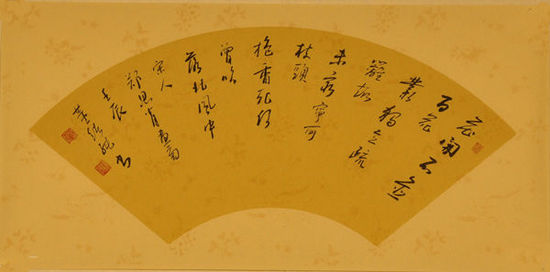 花開不並
百花
叢獨立疏
籬趣
未窮寧可
枝頭
抱香死何
曾吹
落北風中
宋人
郑思肖画菊
壬辰
董 书